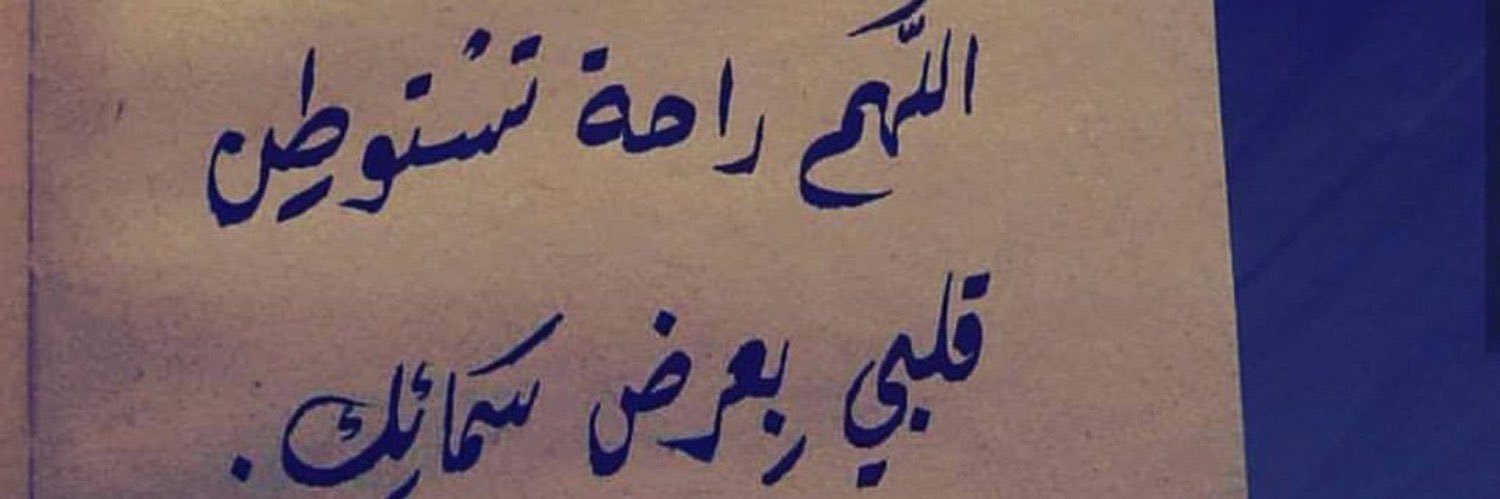 اللّهم راحة تستوطِن
قلبي بِعرض سمائِك.